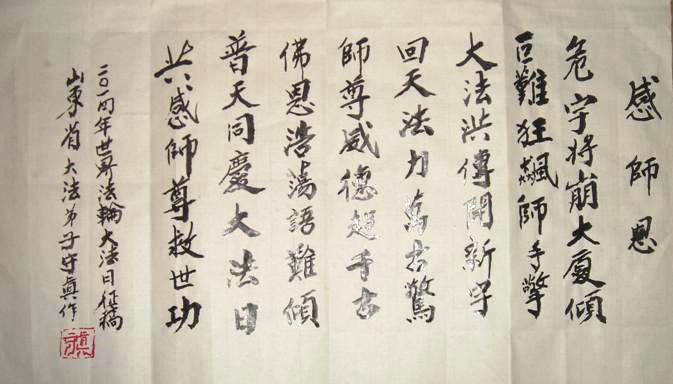 感師恩
危宇将崩大厦傾
巨難狂飆師手擎
大法洪傳開新宇
回天法力萬古驚
師尊威德超千古
佛恩浩蕩語難傾
普天同慶大法日
共感師尊救世功
二〇一四年世界法輪大法日征稿
山東省大法弟子守真作